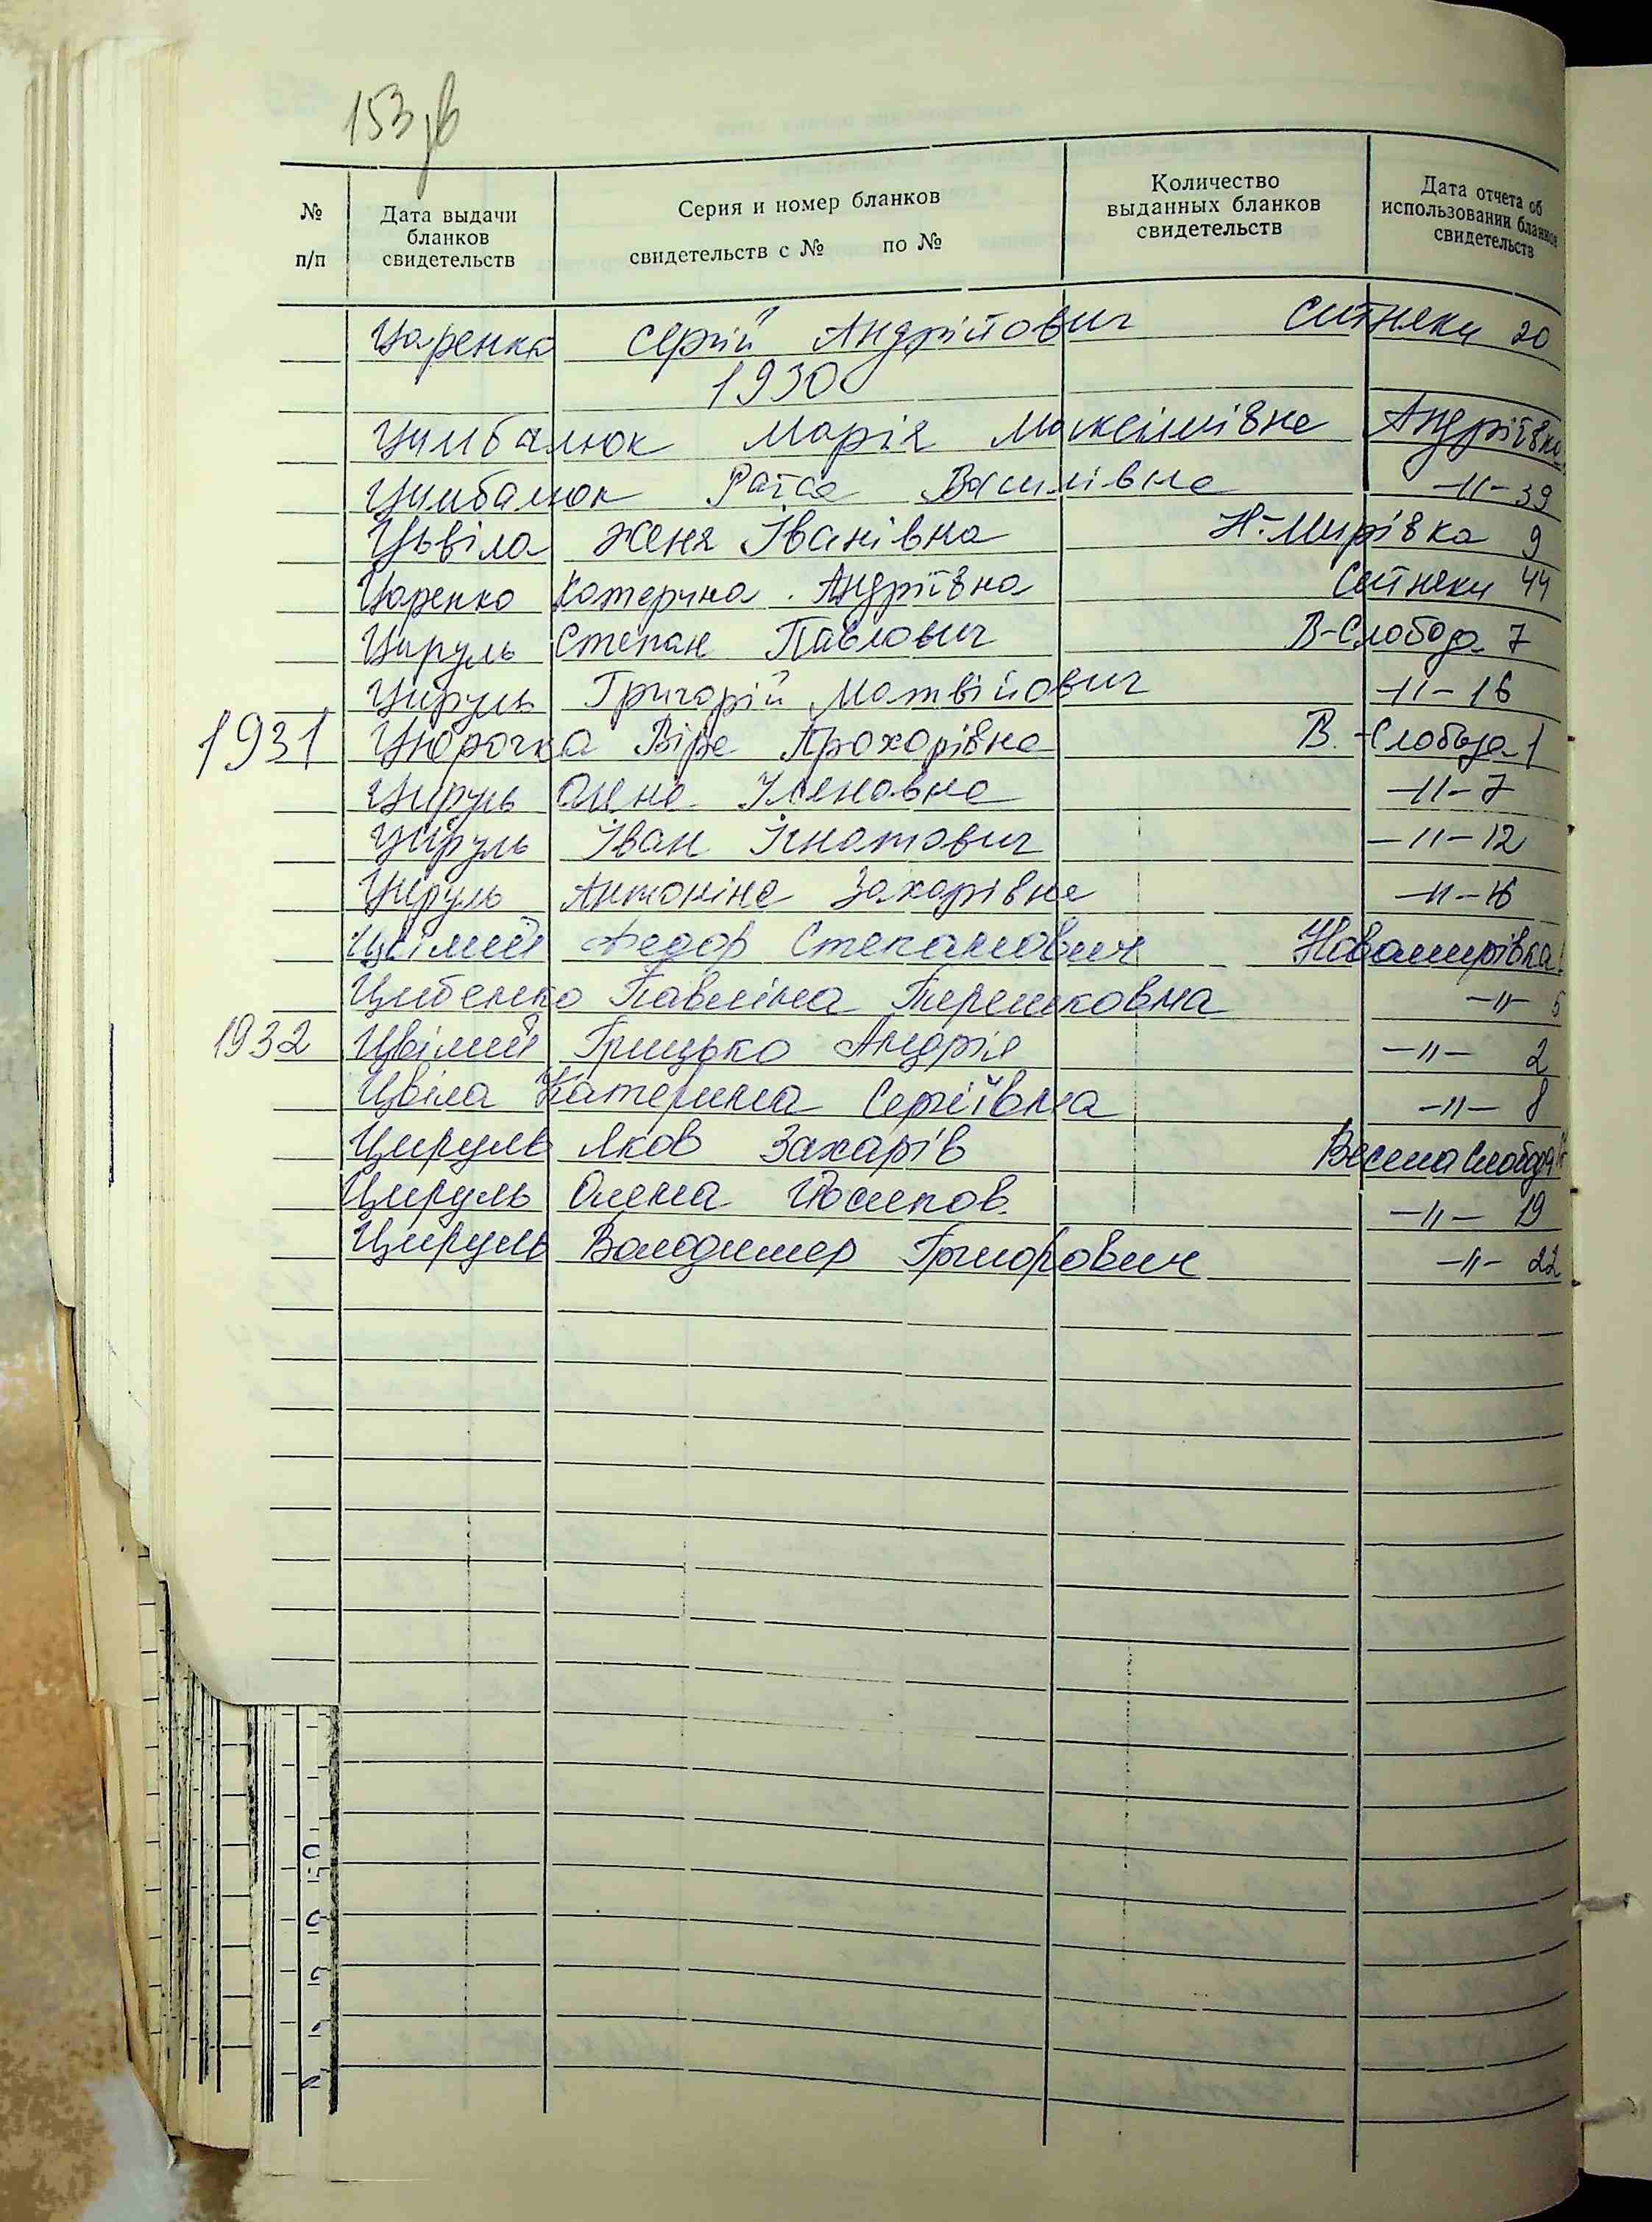 153 зв
№ п/п Дата выдачи бланков свидетельств Серия и номер бланков свидетельств с № по № Количество выданных бланков свидетельств Дата отчета об использовании бланков свидетельств
Царенко Сергій Андрійович Ситняки 20
1930
Цимбалюк Марія Максімівна Андріївка
Цимбалюк Раїса Василівна -11- 39
Цьвіла Женя Іванівна Н-Мирівка 9
Царенко Катерина Андріївна Ситняки 44
Цируль Степан Павлович В-Слобода 7
Цируль Григорій Матвійович -11- 16
1931 Цюрочка Віра Прохорівна В.-Слобода 1
Цируль Олена Уляновна -11- 7
Цируль Іван Ігнатович -11- 12
Цируль Антоніна Захарівна -11- 16
Цвілий Федор Степанович Новомирівка
Цибенко Павліна Терешковна -11- 5
1932 Цвілий Грицько Андрія -11- 2
Цвіла Катерина Сергіївна -11- 8
Цируль Яков Захарів Весела Слобода
Цируль Олена Йосипов. -11- 19
Цируль Володимер Григорович -11- 22